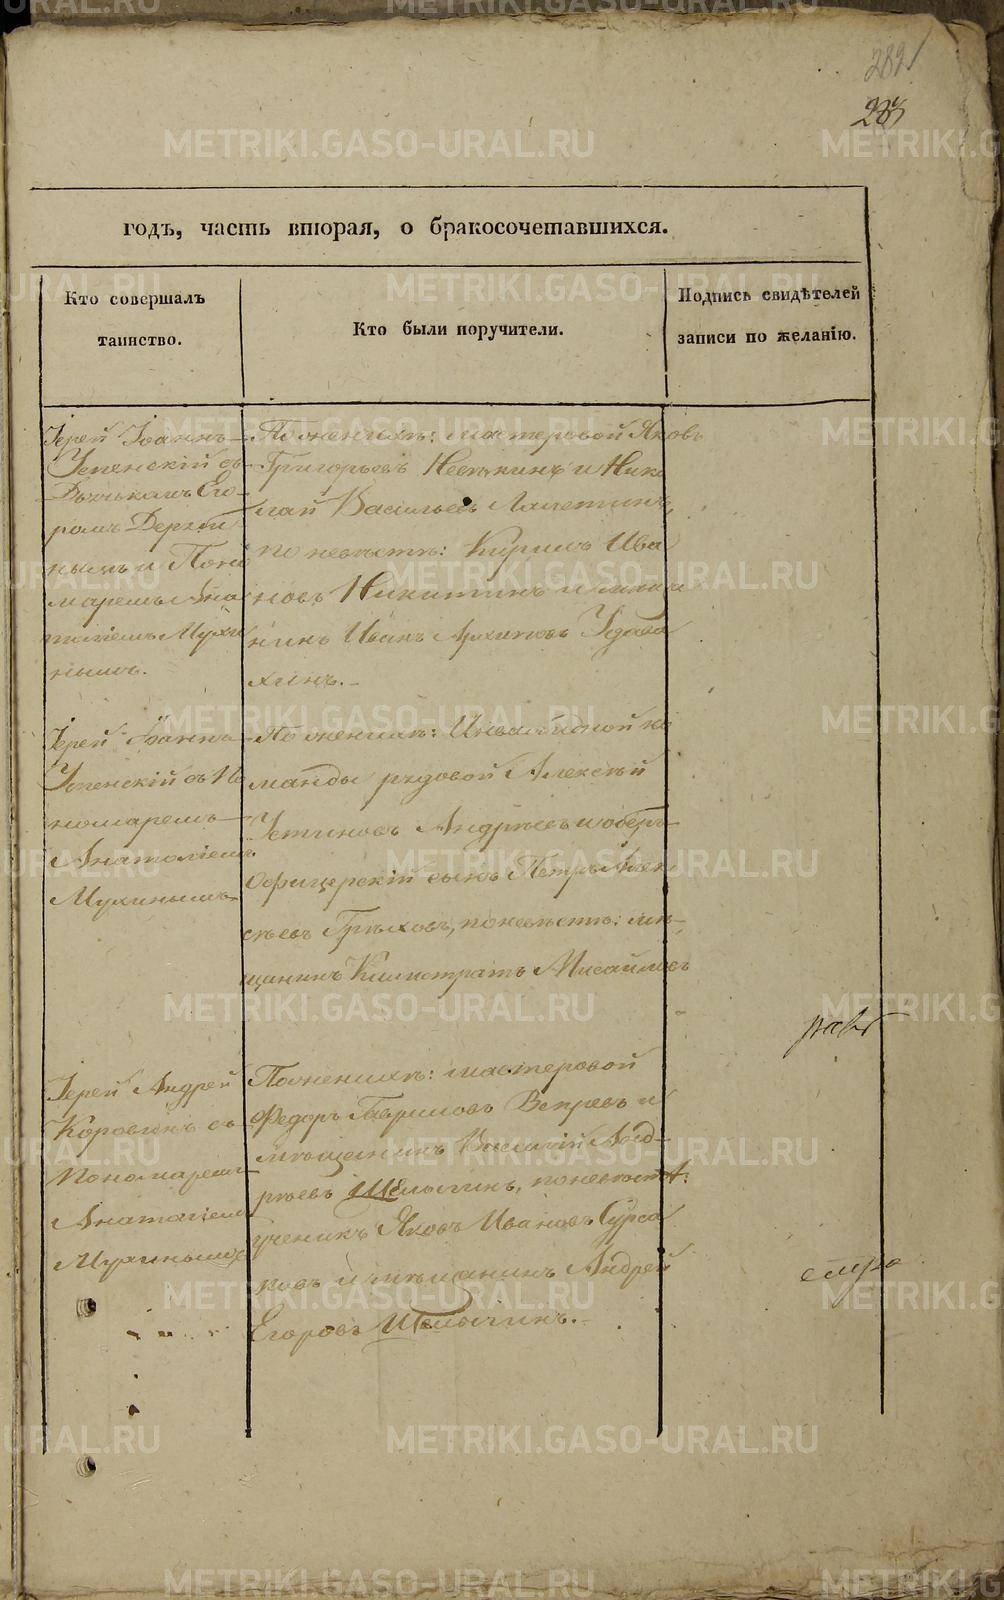 годъ, часть вторая, о бракосочетавшихся.
Кто совершалъ
таинство.
Кто были поручители.
Подпись свидѣтелей
записи по желанію.
Іерей Іоаннъ
Успенскій съ
Дьячькомъ Его
ромъ
нымъ и Поно
маремъ Ана
толіемъ Мухи
нымъ.
По женихѣ: мастеровой Яковъ
Григорьевъ и Нико
лай Васильевъ
по невѣстѣ: Кирилъ Ива
новъ Никитинъ и мѣща
нинъ Иванъ Архиповъ
хинъ.
Іерей Іоаннъ
Успенскій съ По
номаремъ
Анатоліемъ
Мухинымъ
По женихѣ: Инвалидной ко
манды рядовой Алексѣй
Устиновъ Андреевъ и оберъ-
офицерскій сынъ Петръ Алек
сѣевъ Грѣховъ, по невѣстѣ: мѣ-
щанинъ Калистратъ Мисаиловъ
Іерей Андрей
Коровинъ съ
Пономаремъ
Анатоліемъ
Мухинымъ
По женихѣ: мастеровой
Федоръ Гавриловъ Вепревъ и
мѣщанинъ Василій Анд-
реевъ по невѣстѣ:
ученикъ Яковъ Ивановъ Сурса
ковъ и мѣщанинъ Андрей
Егоровъ
METRIKI.GASO-URAL.RU